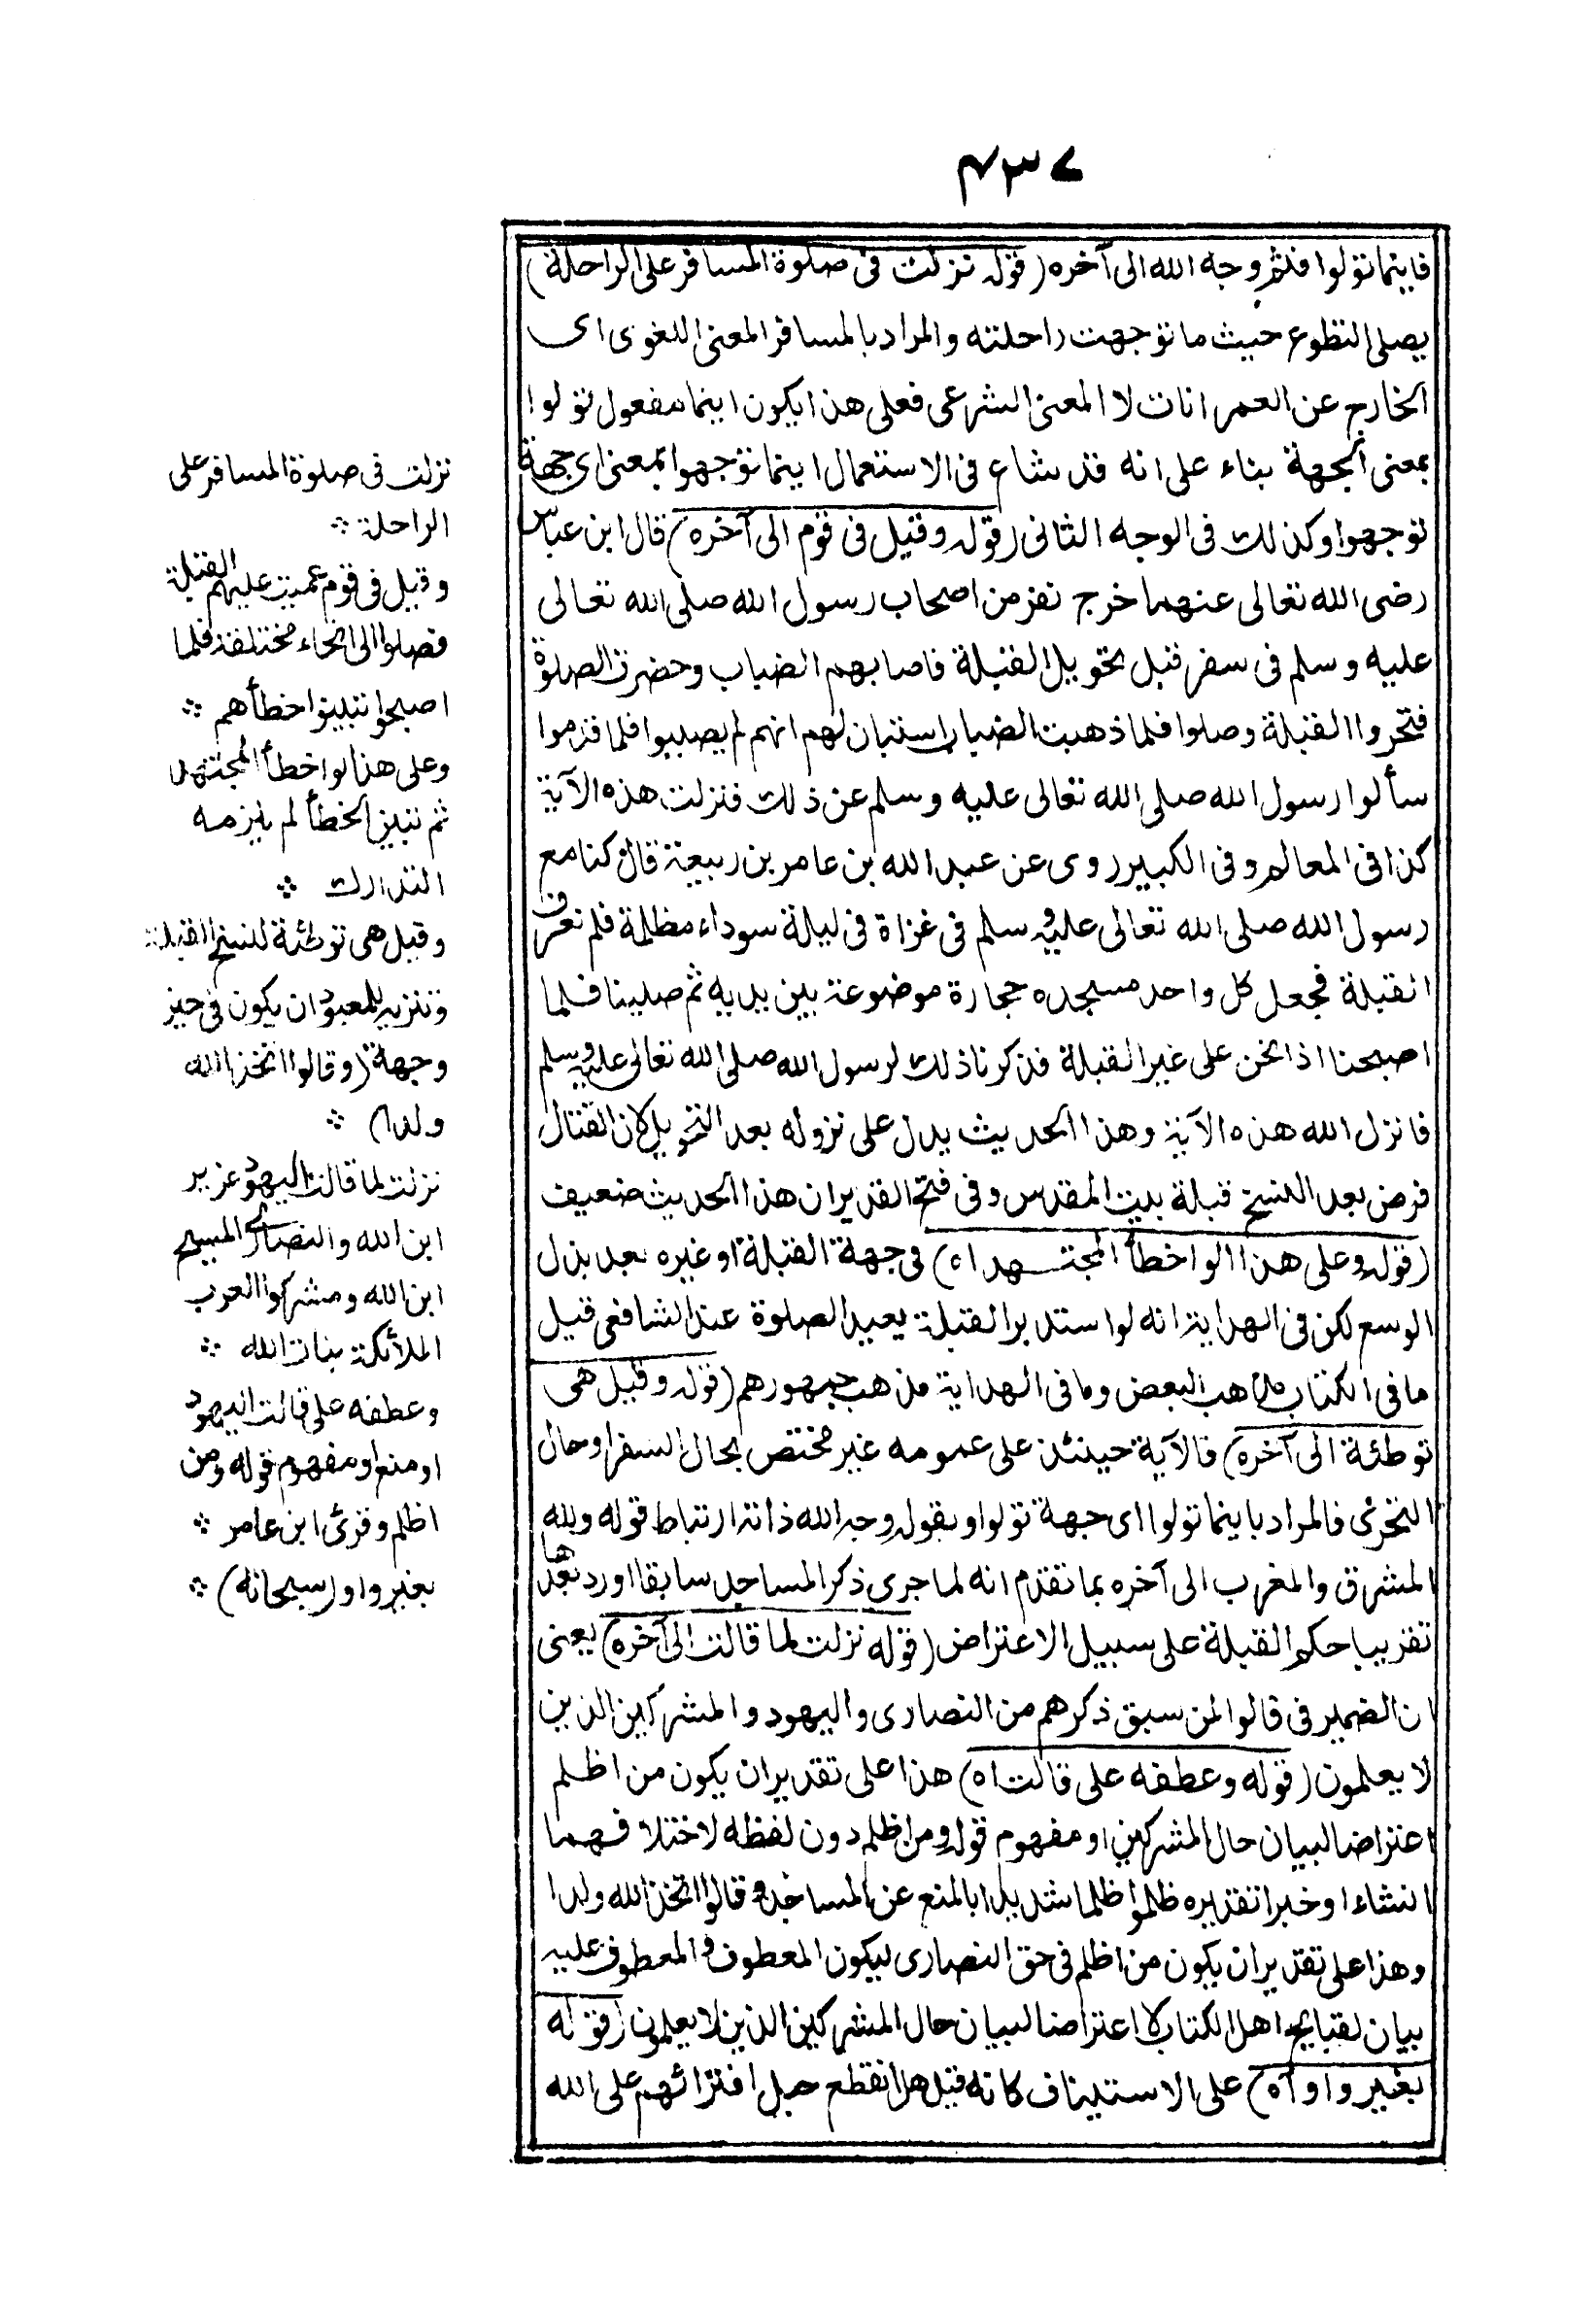 ٤٣٧
فاينما تولوا فثم وجه الله الى آخره (قوله نزلت فى صلوة المسافر على الراحلة)
يصلى التطوع حيث ما توجهت راحلته والمراد بالمسافر المعنى اللغوى اى
الخارج عن العمرانات لا المعنى الشرعى فعلى هذا يكون اينما مفعول تولوا
بمعنى الجهة بناء على انه قد شاع فى الاستعمال اينما توجهوا بمعنى اى جهة
توجهوا وكذلك فى الوجه الثانى (قوله وقيل فى قوم الى آخره) قال ابن عباس
رضى الله تعالى عنهما خرج نفر من اصحاب رسول الله صلى الله تعالى
عليه وسلم فى سفر قبل تحويل القبلة فاصابهم الضباب وحضرت الصلوة
فتحروا القبلة وصلوا فلما ذهبت الضباب استبان لهم انهم لم يصيبوا فلما قدموا
سألوا رسول الله صلى الله تعالى عليه وسلم عن ذلك فنزلت هذه الآية
كذا فى المعالم وفى الكبير روى عن عبد الله بن عامر بن ربيعة قال كنا مع
رسول الله صلى الله تعالى عليه وسلم فى غزاة فى ليلة سوداء مظلمة فلم نعرف
القبلة فجعل كل واحد مسجده حجارة موضوعة بين يديه ثم صلينا فلما
اصبحنا اذا نحن على غير القبلة فذكرنا ذلك لرسول الله صلى الله تعالى عليه وسلم
فانزل الله هذه الآية وهذا الحديث يدل على نزوله بعد التحويل لان القتال
فرض بعد النسخ قبلة بيت المقدس وفى فتح القدير ان هذا الحديث ضعيف
(قوله وعلى هذا الو اخطأ المجتهد اه) فى جهة القبلة او غيره بعد بذل
الوسع لكن فى الهداية انه لو استدبر القبلة يعيد الصلوة عند الشافعى قيل
ما فى الكتاب مذاهب البعض وما فى الهداية مذهب جمهورهم (قوله وقيل هى
توطئة الى آخره) فالآية حينئذ على عمومه غير مختص بحال السفر او حال
التحرى فالمراد باينما تولوا اى جهة تولوا وبقوله وجه الله ذاته ارتباط قوله ولله
المشرق والمغرب الى آخره بما تقدم انه لما جرى ذكر المساجد سابقا اورد بعدها
تقريبا حكم القبلة على سبيل الاعتراض (قوله نزلت لما قالت الى آخره) يعنى
ان الضمير فى قالوا لمن سبق ذكرهم من النصارى واليهود والمشركين الذين
لا يعلمون (قوله وعطفه على قالت اه) هذا على تقدير ان يكون من اظلم
اعتراضا لبيان حال المشركين او مفهوم قوله ومن اظلم دون لفظه لاختلافهما
انشاء او خبرا تقديره ظلموا ظلما شديدا بالمنع عن المساجد وقالوا اتخذ الله ولدا
وهذا على تقدير ان يكون من اظلم فى حق النصارى ليكون المعطوف والمعطوف عليه
بيان لقبايح اهل الكتاب لا اعتراضا لبيان حال المشركين الذين لا يعلمون (قوله
بغير واو آه) على الاستيناف كانه قيل هل انقطع حبل افترائهم على الله
نزلت فى صلوة المسافر على
الراحلة
وقيل فى قوم عميت عليهم القبلة
فصلوا الى انحاء مختلفة فلما
اصبحوا تبينوا خطأهم
وعلى هذا لو اخطأ المجتهد
ثم تبين الخطأ لم يلزمه
التدارك
وقيل هى توطئة لنسخ القبلة
وتنزيه للمعبود ان يكون فى حيز
وجهة (وقالوا اتخذ الله
ولدا)
نزلت لما قالت اليهود عزير
ابن الله والنصارى المسيح
ابن الله ومشركوا العرب
الملائكة بنات الله
وعطفه على قالت اليهود
او منع او مفهوم قوله ومن
اظلم وقرئ ابن عامر
بغير واو (سبحانه)